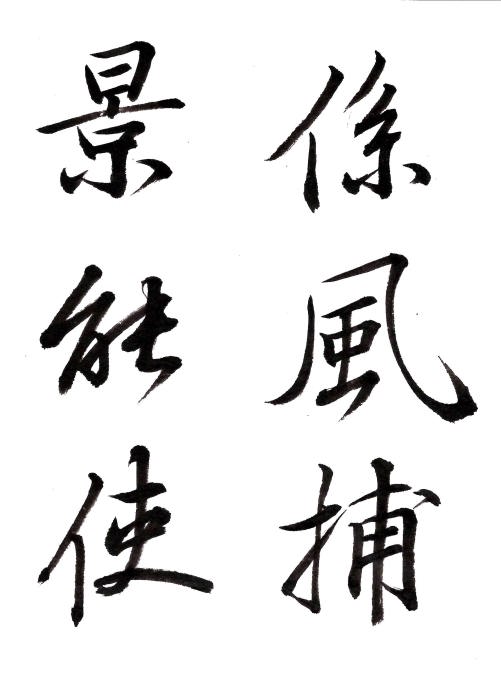 係風捕
景能使